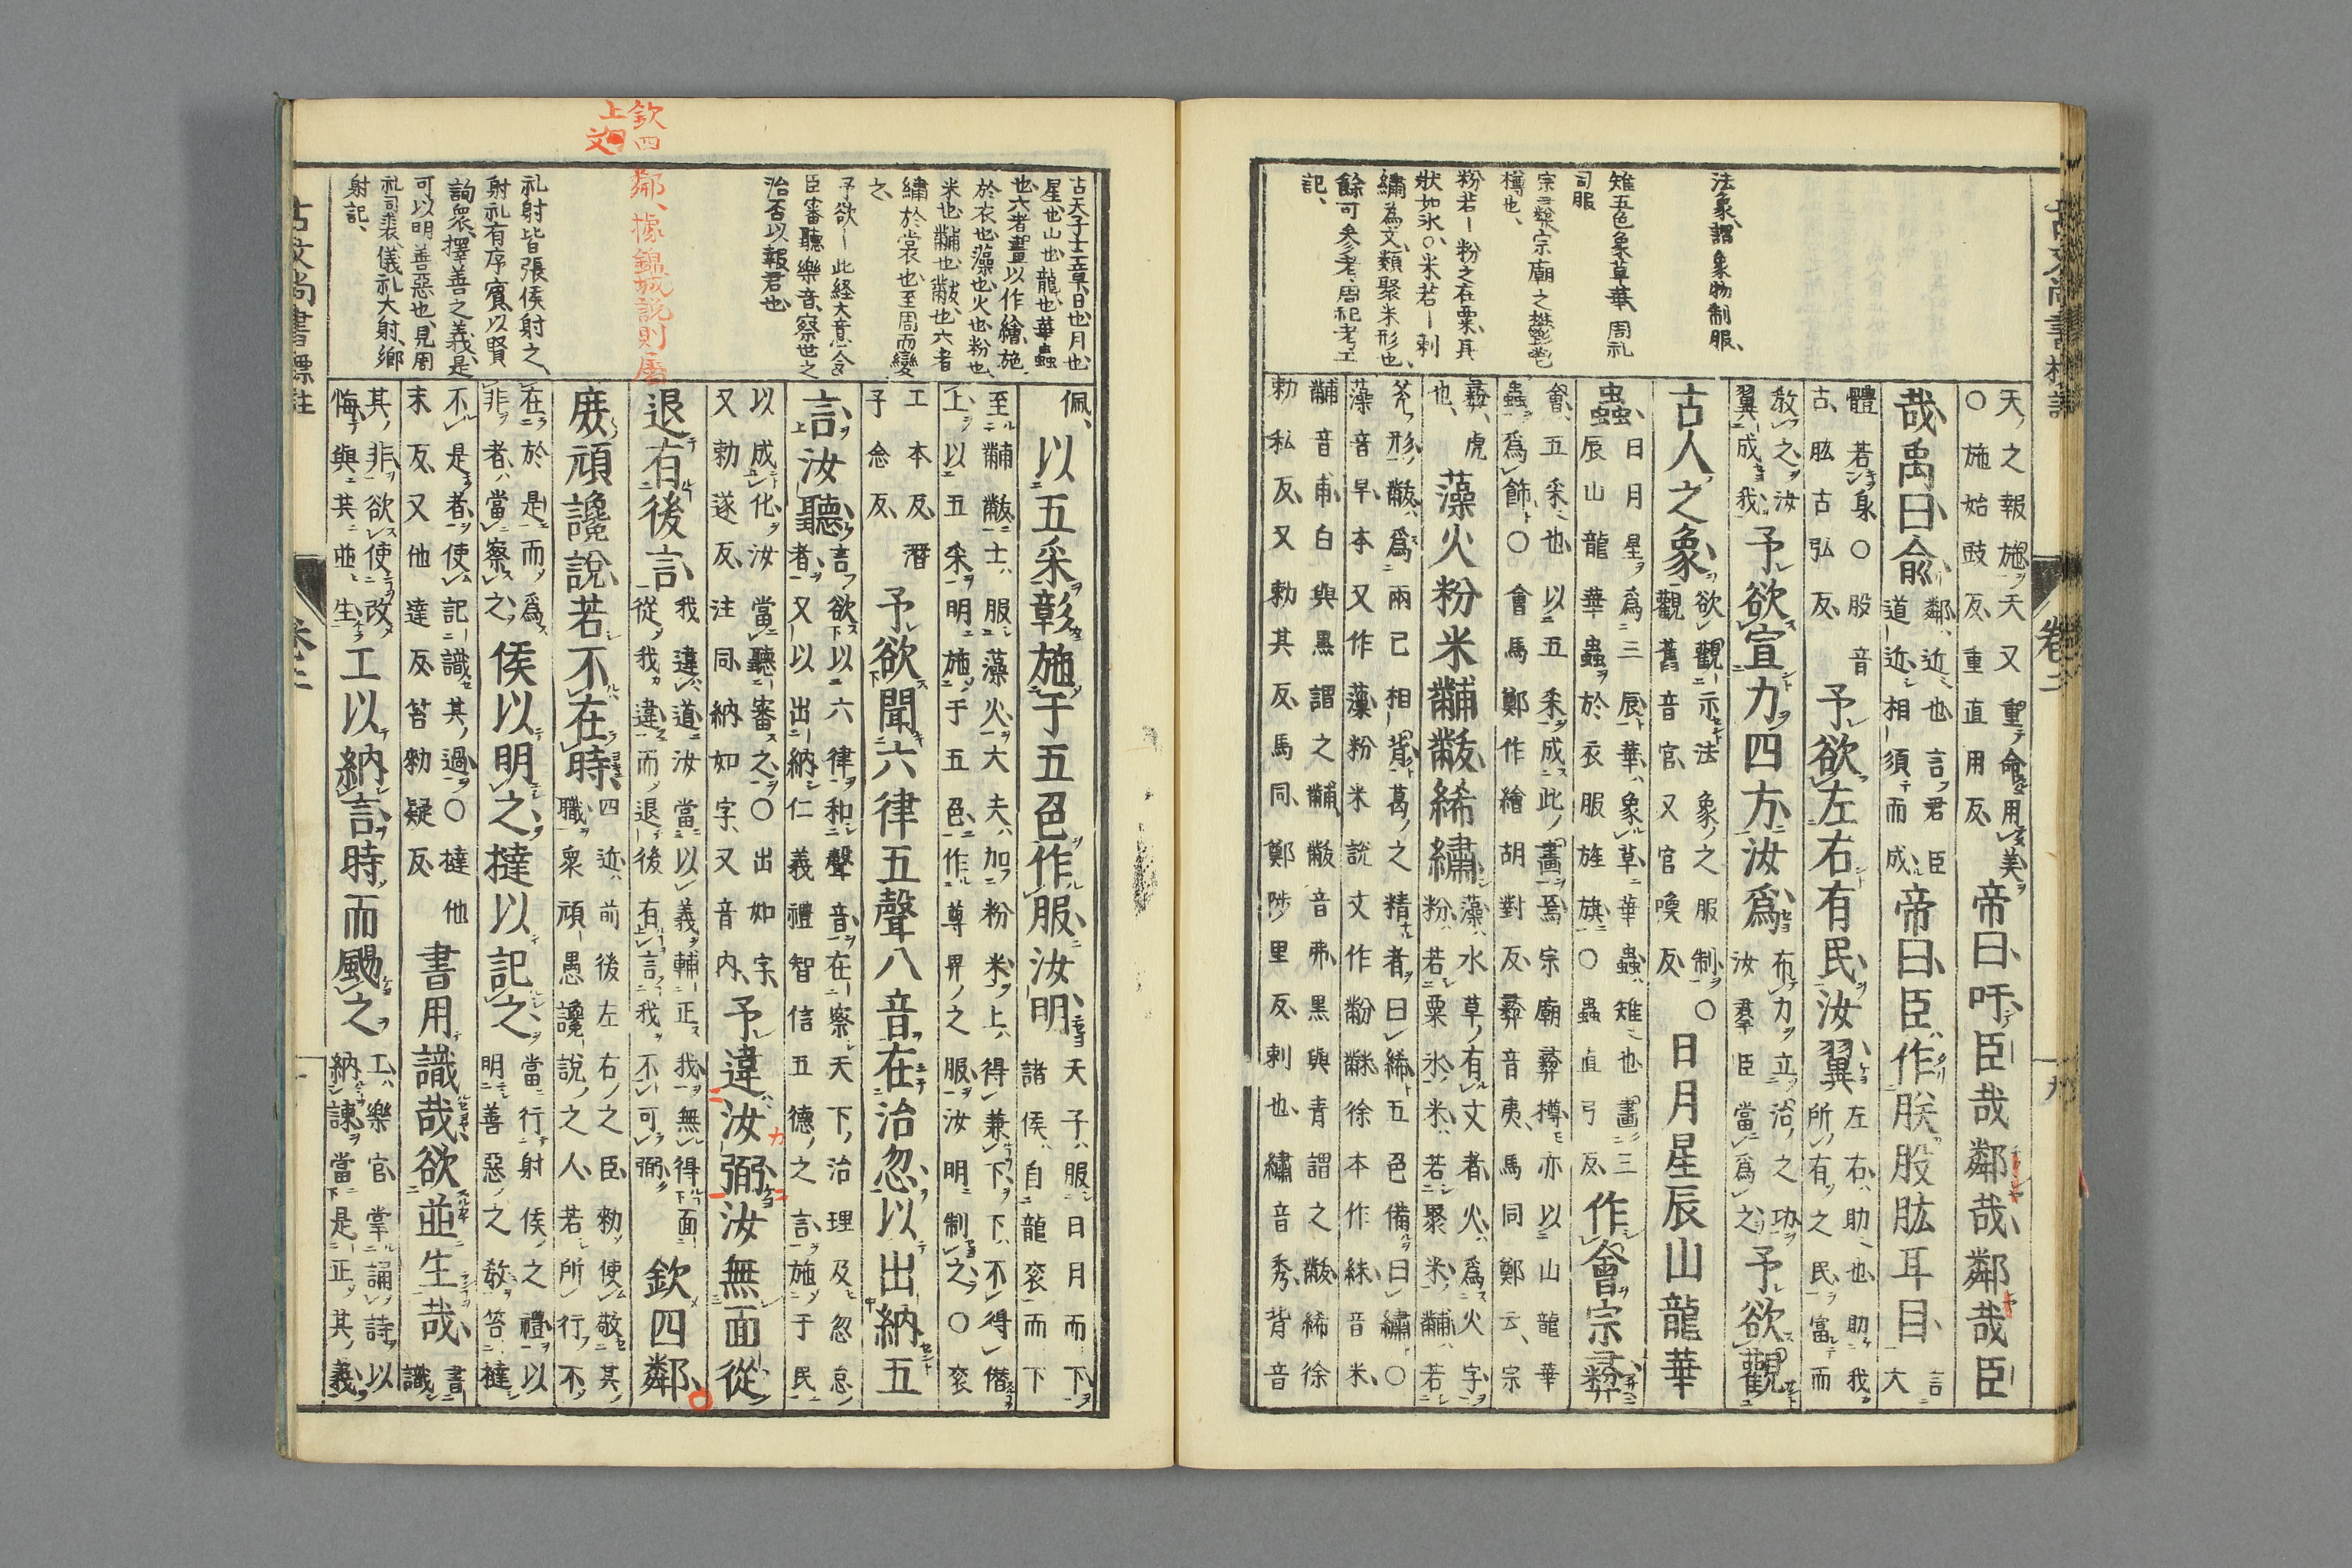 法象、謂象物制服、
雉五色象草華、周礼
司服
宗彝宗廟之欝鬯
樽也、
粉若ー粉之在粟、其
狀如氷○米若ー刺
繡為文、類聚米形也、
餘可参考、周紀考工
記、
天之報施天又重命用美○施始豉反、重直用反、帝曰、吁、臣哉鄰哉、鄰哉臣
哉、禹曰、俞、鄰、近也、言君臣道近、相須而成、帝曰、臣作朕股肱耳目、言大
體若身○股音古、肱古弘反、予欲左右有民、汝翼、左右、助也、助我所有之民、富而
敎之、汝翼成我、予欲宣力四方、汝爲、布力立治之功、汝羣臣當爲之、予欲觀
古人之象、欲觀示法象之服制○觀舊音官、又官喚反、日月星辰山龍華
蟲、日月星爲三辰、華、象草華、蟲、雉也、畫三辰山龍華蟲於衣服旌旗○蟲直弓反、作會宗彝、
會、五采也、以五采成此畫焉、宗廟彝樽亦以山龍華蟲爲飾○會馬鄭作繪胡對反、彝音夷、馬同、鄭云、宗
彝、虎也、藻火粉米黼黻絺繡、藻、水草有文者、火爲火字、粉若粟氷、米若聚米、黼若
斧形、黻爲兩己相背、葛之精者曰絺、五色備曰繡○藻音早、本又作薻、粉米說文作黺䋛、徐本作絑、音米、
黼音甫、白與黑謂之黼、黻音弗、黑與青謂之黻、絺徐勅私反、又勅其反、馬同、鄭陟里反、刺也、繡音秀、背音
卷二
九
古天子十二章、日也、月也、
星也、山也、龍也、華蟲
也、六者畫以作繪、施
於衣也、藻也、火也、粉也、
米也、黼也、黻也、六者
繡於裳也、至周而變
之、
予欲ー此経大意、令
臣審聽樂音、察世之
治否以報君也、
礼射皆張侯射之、
射礼有序賓以賢
詢衆擇善之義、是
可以明善惡也、見周
礼司裘、儀礼大射、鄉
射記、
欽四
鄰、據錦城說則屬
上文
佩、以五采彰施于五色、作服、汝明、天子服日月而下、諸侯自龍衮而下
至黼黻、士服藻火、大夫加粉米、上得兼下、下不得僭上、以五采明施于五色、作尊卑之服、汝明制之、○衮
工本反、潛子念反、予欲聞六律五聲八音、在治忽、以出納五
言、汝聽、言欲以六律和聲音、在察天下治理及忽怠者、又以出納仁義禮智信五德之言、施于民
以成化、汝當聽審之、○出如字、又勅遂反、注同、納如字、又音內、予違汝弼、汝無面從、
退有後言、我違道、汝當以義輔正我、無得面從我違、而退後有言、我不可弼、欽四鄰、
庶頑讒說、若不在時、四近、前後左右之臣、勅使敬其職、衆頑愚讒說之人、若所行不
在於是而爲非者、當察之、侯以明之、撻以記之、當行射侯之禮、以明善惡之敎、笞撻
不是者、使記識其過、○撻他末反、又他達反、笞勅疑反、書用識哉、欲並生哉、書識
其非、欲使改悔、與共並生、工以納言、時而颺之、工、樂官、掌誦詩以納諫、當是正其義、
古文尚書標註
卷二